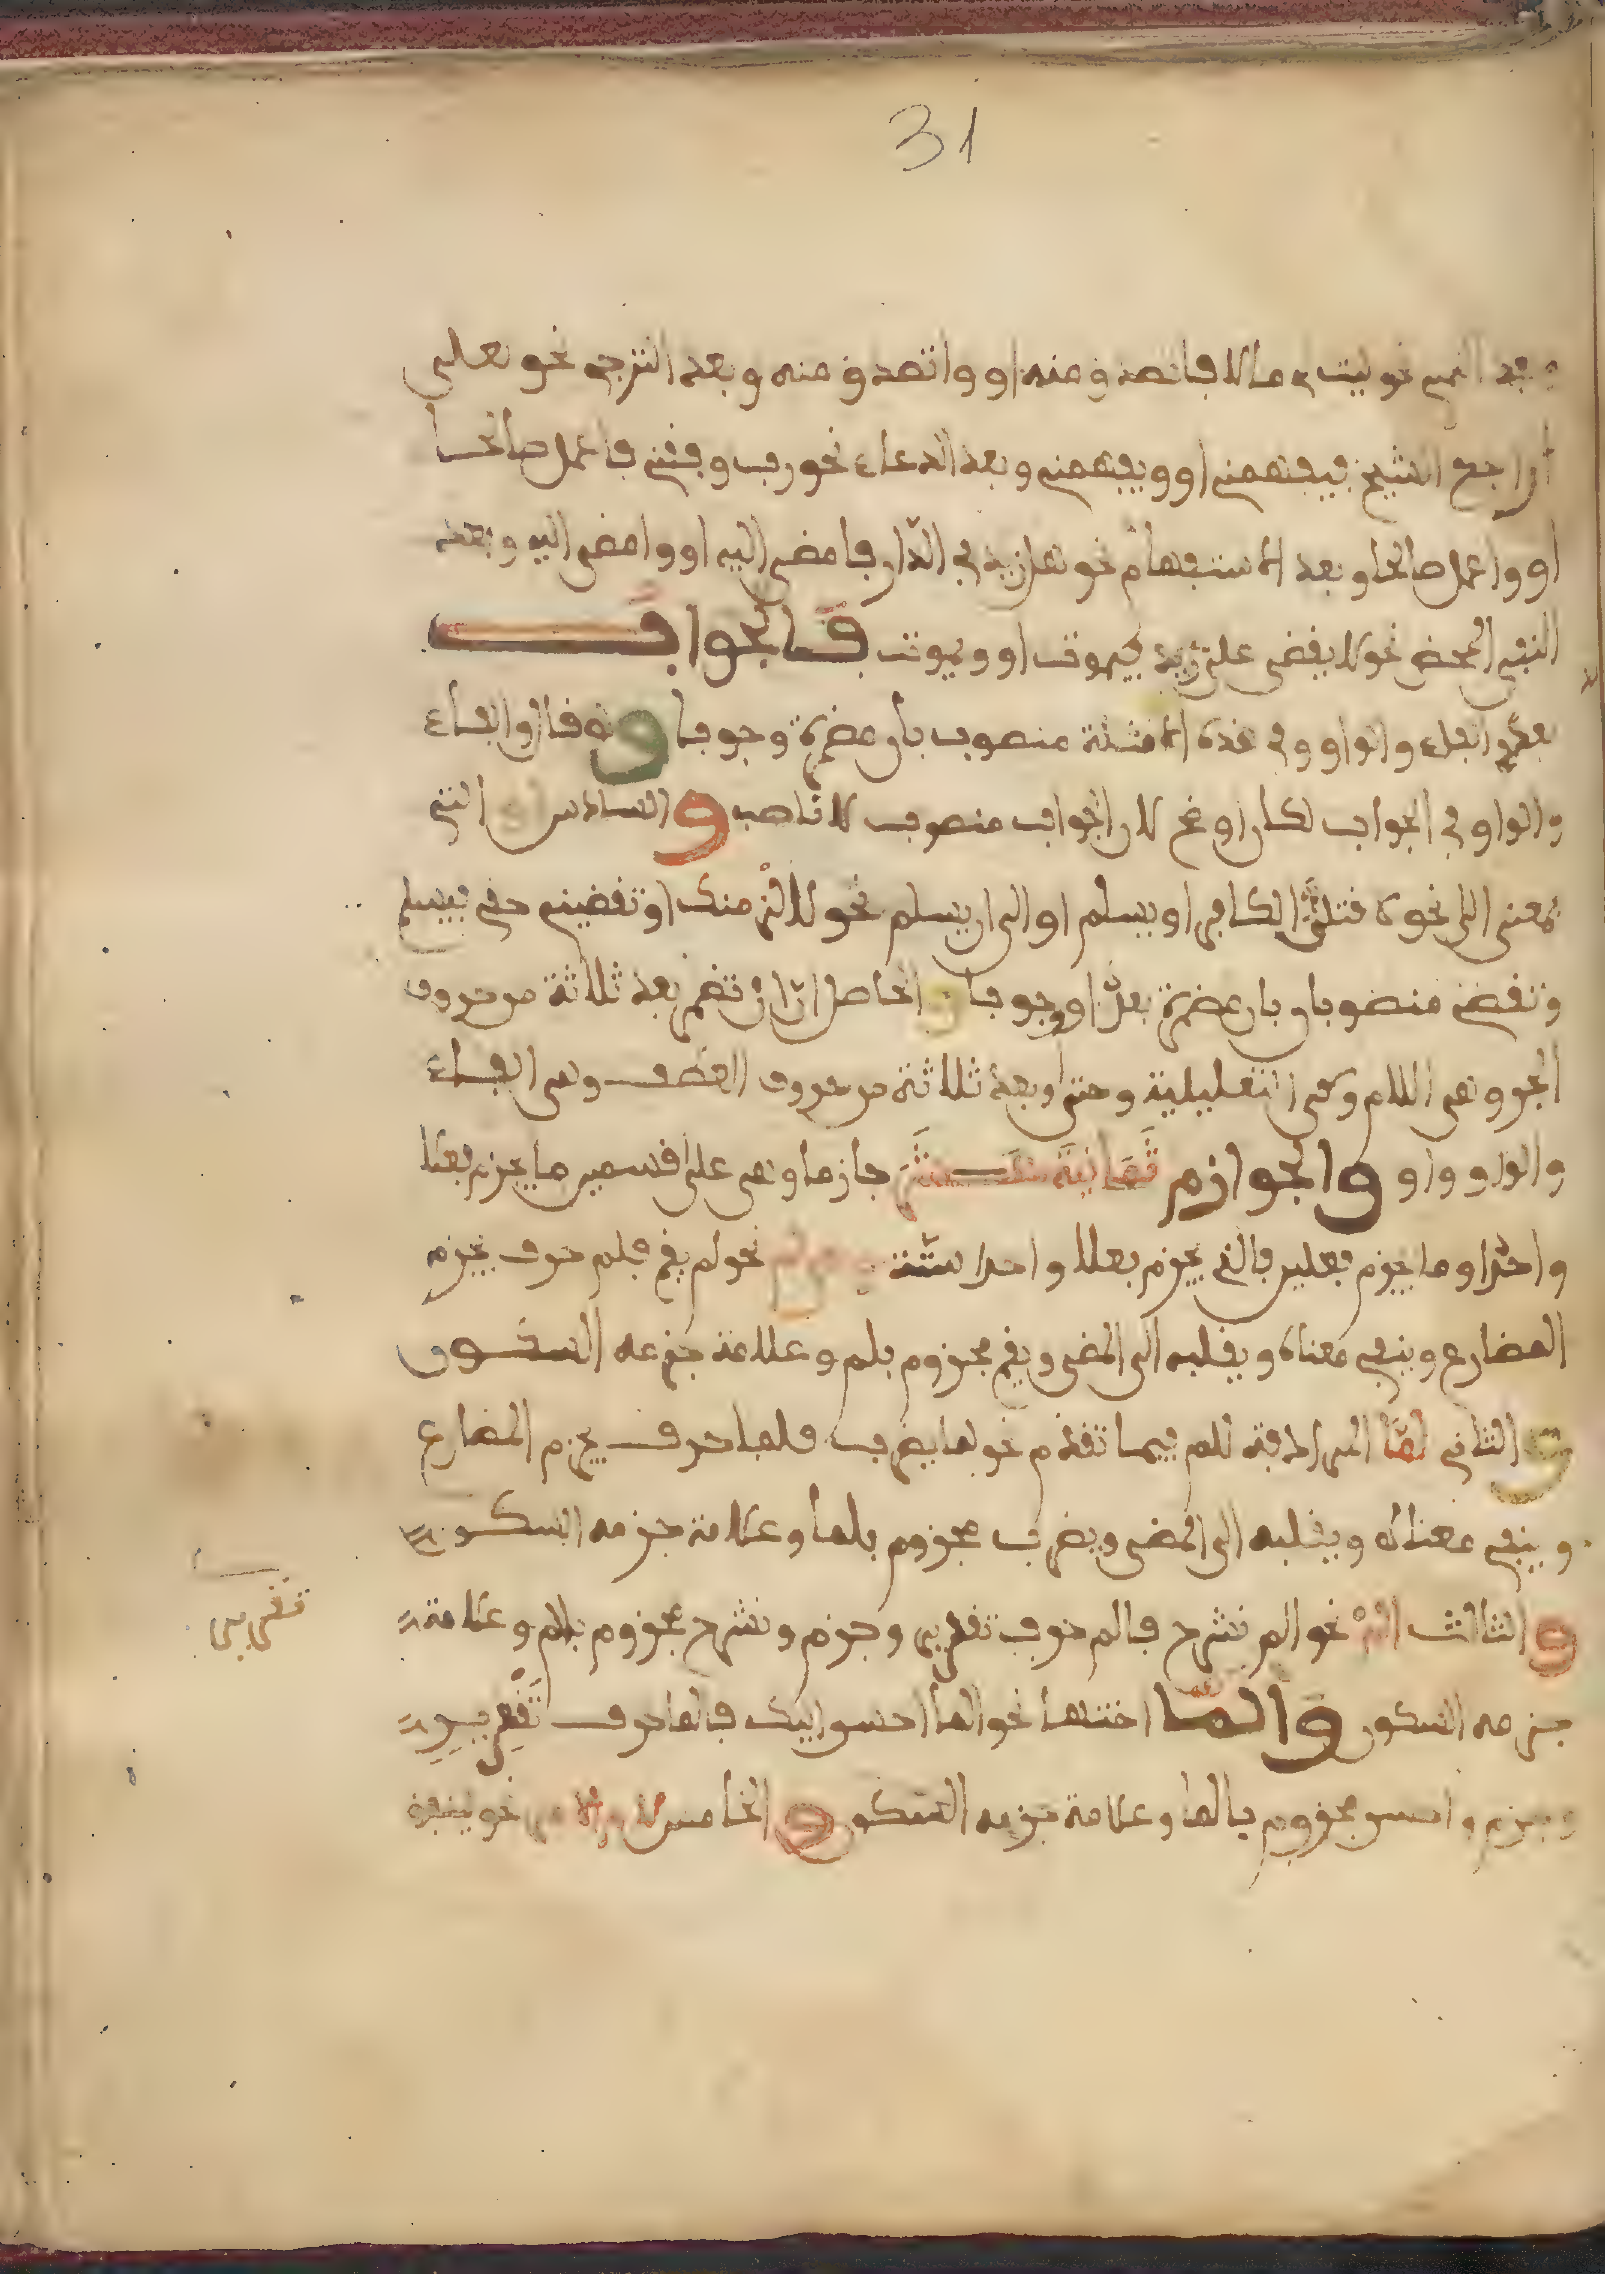 31
وبعد التمني نحو ليت لي مالا فاتصدق منه او واتصدق منه وبعد الترجي نحو لعلي
اراجع الشيخ فيفهمني او ويفهمني وبعد الدعاء نحو رب وفقني فاعمل صالحا
او واعمل صالحا وبعد الاستفهام نحو هل زيد في الدار فامضي اليه او وامضي اليه وبعد
النفي المحض نحو لا يقضى على زيد فيموت او ويموت فالجواب
بعد الفاء والواو وفي هذه الامثلة منصوب بان مضمرة وجوبا ولو قال والفاء
والواو في الجواب لكان اوضح لان الجواب منصوب لا ناصب والسادس او التي
بمعنى الى نحو لاقتلن الكافر او يسلم او الى ان يسلم نحو لالزمنك او تقضيني حقي فيسلم
وتقضي منصوبان بان مضمرة بعد او وجوبا والحاصل ان ان تضمر بعد ثلاثة من حروف
الجر وهي اللام وكي التعليلية وحتى وبعد ثلاثة من حروف العطف وهي الفاء
والواو واو والجوازم ثمانية عشر جازما وهي على قسمين ما يجزم فعلا
واحدا وما يجزم فعلين فالذي يجزم فعلا واحدا ستة لم نحو لم يقم فلم حرف يجزم
المضارع وينفي معناه ويقلبه الى المضي ويقم مجزوم بلم وعلامة جزمه السكون
والثاني لما المرادفة للم فيما تقدم نحو لما يضرب فلما حرف يجزم المضارع
وينفي معناه ويقلبه الى المضي ويضرب مجزوم بلما وعلامة جزمه السكون
والثالث الم نحو الم نشرح فالم حرف تقرير وجزم ونشرح مجزوم بالم وعلامة
جزمه السكون والما اختها نحو الما احسن اليك فالما حرف تقرير
وجزم واحسن مجزوم بالما وعلامة جزمه السكون والخامس لام الامر نحو لينفق
تقرير